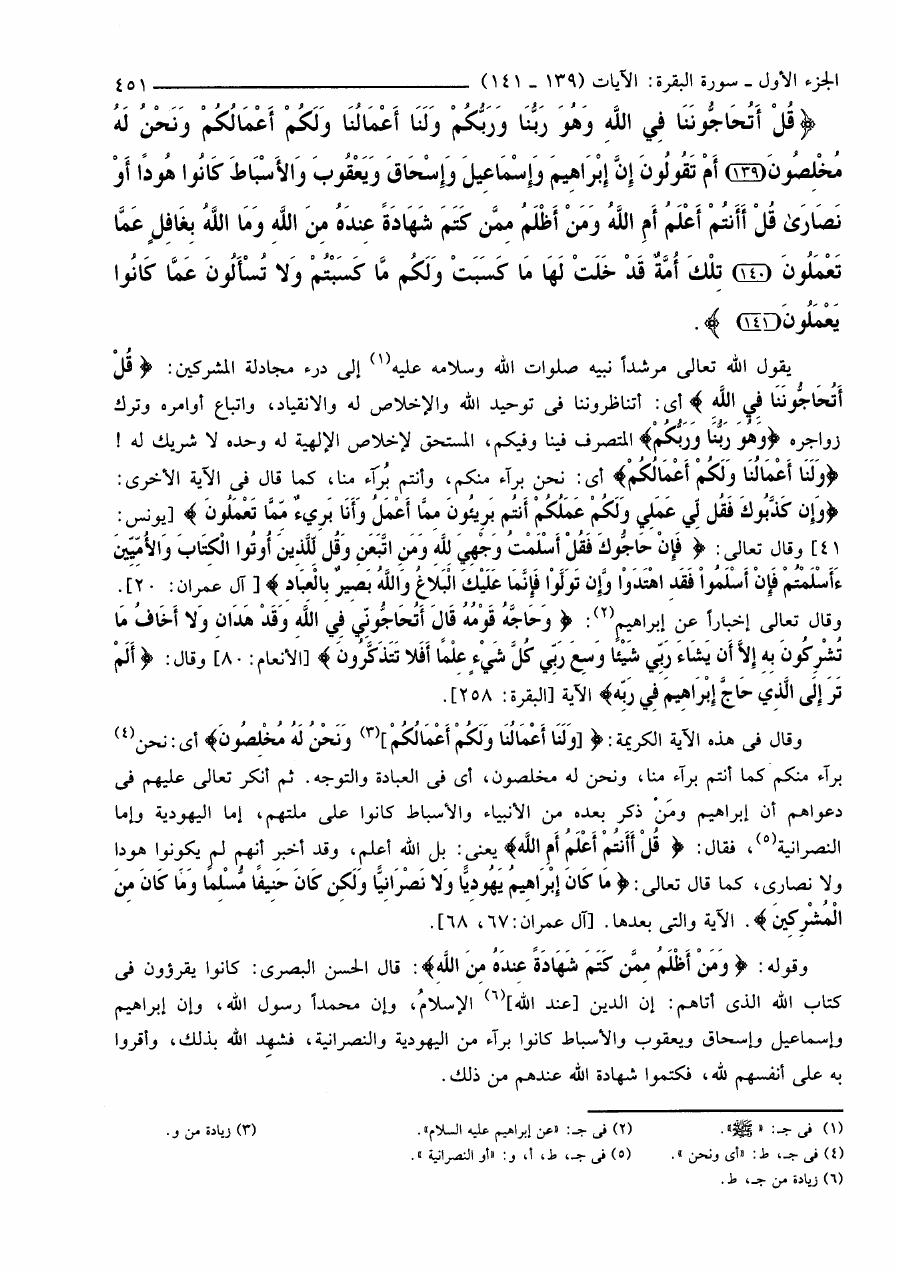 الجزء الأول ـ سورة البقرة: الآيات (١٣٩ ـ ١٤١) ٤٥١
﴿ قُلْ أَتُحَاجُّونَنَا فِي اللَّهِ وَهُوَ رَبُّنَا وَرَبُّكُمْ وَلَنَا أَعْمَالُنَا وَلَكُمْ أَعْمَالُكُمْ وَنَحْنُ لَهُ
مُخْلِصُونَ (١٣٩) أَمْ تَقُولُونَ إِنَّ إِبْرَاهِيمَ وَإِسْمَاعِيلَ وَإِسْحَاقَ وَيَعْقُوبَ وَالأَسْبَاطَ كَانُوا هُودًا أَوْ
نَصَارَىٰ قُلْ أَأَنتُمْ أَعْلَمُ أَمِ اللَّهُ وَمَنْ أَظْلَمُ مِمَّن كَتَمَ شَهَادَةً عِندَهُ مِنَ اللَّهِ وَمَا اللَّهُ بِغَافِلٍ عَمَّا
تَعْمَلُونَ (١٤٠) تِلْكَ أُمَّةٌ قَدْ خَلَتْ لَهَا مَا كَسَبَتْ وَلَكُم مَّا كَسَبْتُمْ وَلا تُسْأَلُونَ عَمَّا كَانُوا
يَعْمَلُونَ (١٤١) ﴾ .
يقول الله تعالى مرشداً نبيه صلوات الله وسلامه عليه(١) إلى درء مجادلة المشركين: ﴿ قُلْ
أَتُحَاجُّونَنَا فِي اللَّهِ ﴾ أى: أتناظروننا فى توحيد الله والإخلاص له والانقياد، واتباع أوامره وترك
زواجره ﴿وَهُوَ رَبُّنَا وَرَبُّكُمْ﴾ المتصرف فينا وفيكم، المستحق لإخلاص الإلهية له وحده لا شريك له !
﴿وَلَنَا أَعْمَالُنَا وَلَكُمْ أَعْمَالُكُمْ﴾ أى: نحن برآء منكم، وأنتم بُرآء منا، كما قال فى الآية الأخرى:
﴿وَإِن كَذَّبُوكَ فَقُل لِّي عَمَلِي وَلَكُمْ عَمَلُكُمْ أَنتُم بَرِيئُونَ مِمَّا أَعْمَلُ وَأَنَا بَرِيءٌ مِّمَّا تَعْمَلُونَ ﴾ [يونس:
٤١] وقال تعالى: ﴿ فَإِنْ حَاجُّوكَ فَقُلْ أَسْلَمْتُ وَجْهِيَ لِلَّهِ وَمَنِ اتَّبَعَنِ وَقُل لِّلَّذِينَ أُوتُوا الْكِتَابَ وَالأُمِّيِّينَ
ءَأَسْلَمْتُمْ فَإِنْ أَسْلَمُوا فَقَدِ اهْتَدَوْا وَّإِن تَوَلَّوْا فَإِنَّمَا عَلَيْكَ الْبَلاغُ وَاللَّهُ بَصِيرٌ بِالْعِبَادِ ﴾ [ آل عمران: ٢٠].
وقال تعالى إخباراً عن إبراهيم(٢): ﴿ وَحَاجَّهُ قَوْمُهُ قَالَ أَتُحَاجُّونِّي فِي اللَّهِ وَقَدْ هَدَانِ وَلا أَخَافُ مَا
تُشْرِكُونَ بِهِ إِلاَّ أَن يَشَاءَ رَبِّي شَيْئًا وَسِعَ رَبِّي كُلَّ شَيْءٍ عِلْمًا أَفَلا تَتَذَكَّرُونَ ﴾ [الأنعام: ٨٠] وقال: ﴿ أَلَمْ
تَرَ إِلَى الَّذِي حَاجَّ إِبْرَاهِيمَ فِي رَبِّهِ﴾ الآية [البقرة: ٢٥٨].
وقال فى هذه الآية الكريمة: ﴿ [وَلَنَا أَعْمَالُنَا وَلَكُمْ أَعْمَالُكُمْ](٣) وَنَحْنُ لَهُ مُخْلِصُونَ﴾ أى: نحن(٤)
برآء منكم كما أنتم برآء منا، ونحن له مخلصون، أى فى العبادة والتوجه. ثم أنكر تعالى عليهم فى
دعواهم أن إبراهيم ومَنْ ذكر بعده من الأنبياء والأسباط كانوا على ملتهم، إما اليهودية وإما
النصرانية(٥)، فقال: ﴿ قُلْ أَأَنتُمْ أَعْلَمُ أَمِ اللَّهُ﴾ يعنى: بل الله أعلم، وقد أخبر أنهم لم يكونوا هودا
ولا نصارى، كما قال تعالى: ﴿ مَا كَانَ إِبْرَاهِيمُ يَهُودِيًّا وَلا نَصْرَانِيًّا وَلَكِن كَانَ حَنِيفًا مُّسْلِمًا وَمَا كَانَ مِنَ
الْمُشْرِكِينَ ﴾. الآية والتى بعدها. [آل عمران: ٦٧، ٦٨].
وقوله: ﴿ وَمَنْ أَظْلَمُ مِمَّن كَتَمَ شَهَادَةً عِندَهُ مِنَ اللَّهِ﴾: قال الحسن البصرى: كانوا يقرؤون فى
كتاب الله الذى أتاهم: إن الدين [عند الله](٦) الإسلامُ، وإن محمداً رسول الله، وإن إبراهيم
وإسماعيل وإسحاق ويعقوب والأسباط كانوا برآء من اليهودية والنصرانية، فشهِد الله بذلك، وأقروا
به على أنفسهم لله، فكتموا شهادة الله عندهم من ذلك.
(١) فى جـ: « ﷺ». (٢) فى جـ: «عن إبراهيم عليه السلام». (٣) زيادة من و.
(٤) فى جـ، ط: «أى ونحن ». (٥) فى جـ، ط، أ، و: «أو النصرانية ».
(٦) زيادة من جـ، ط.